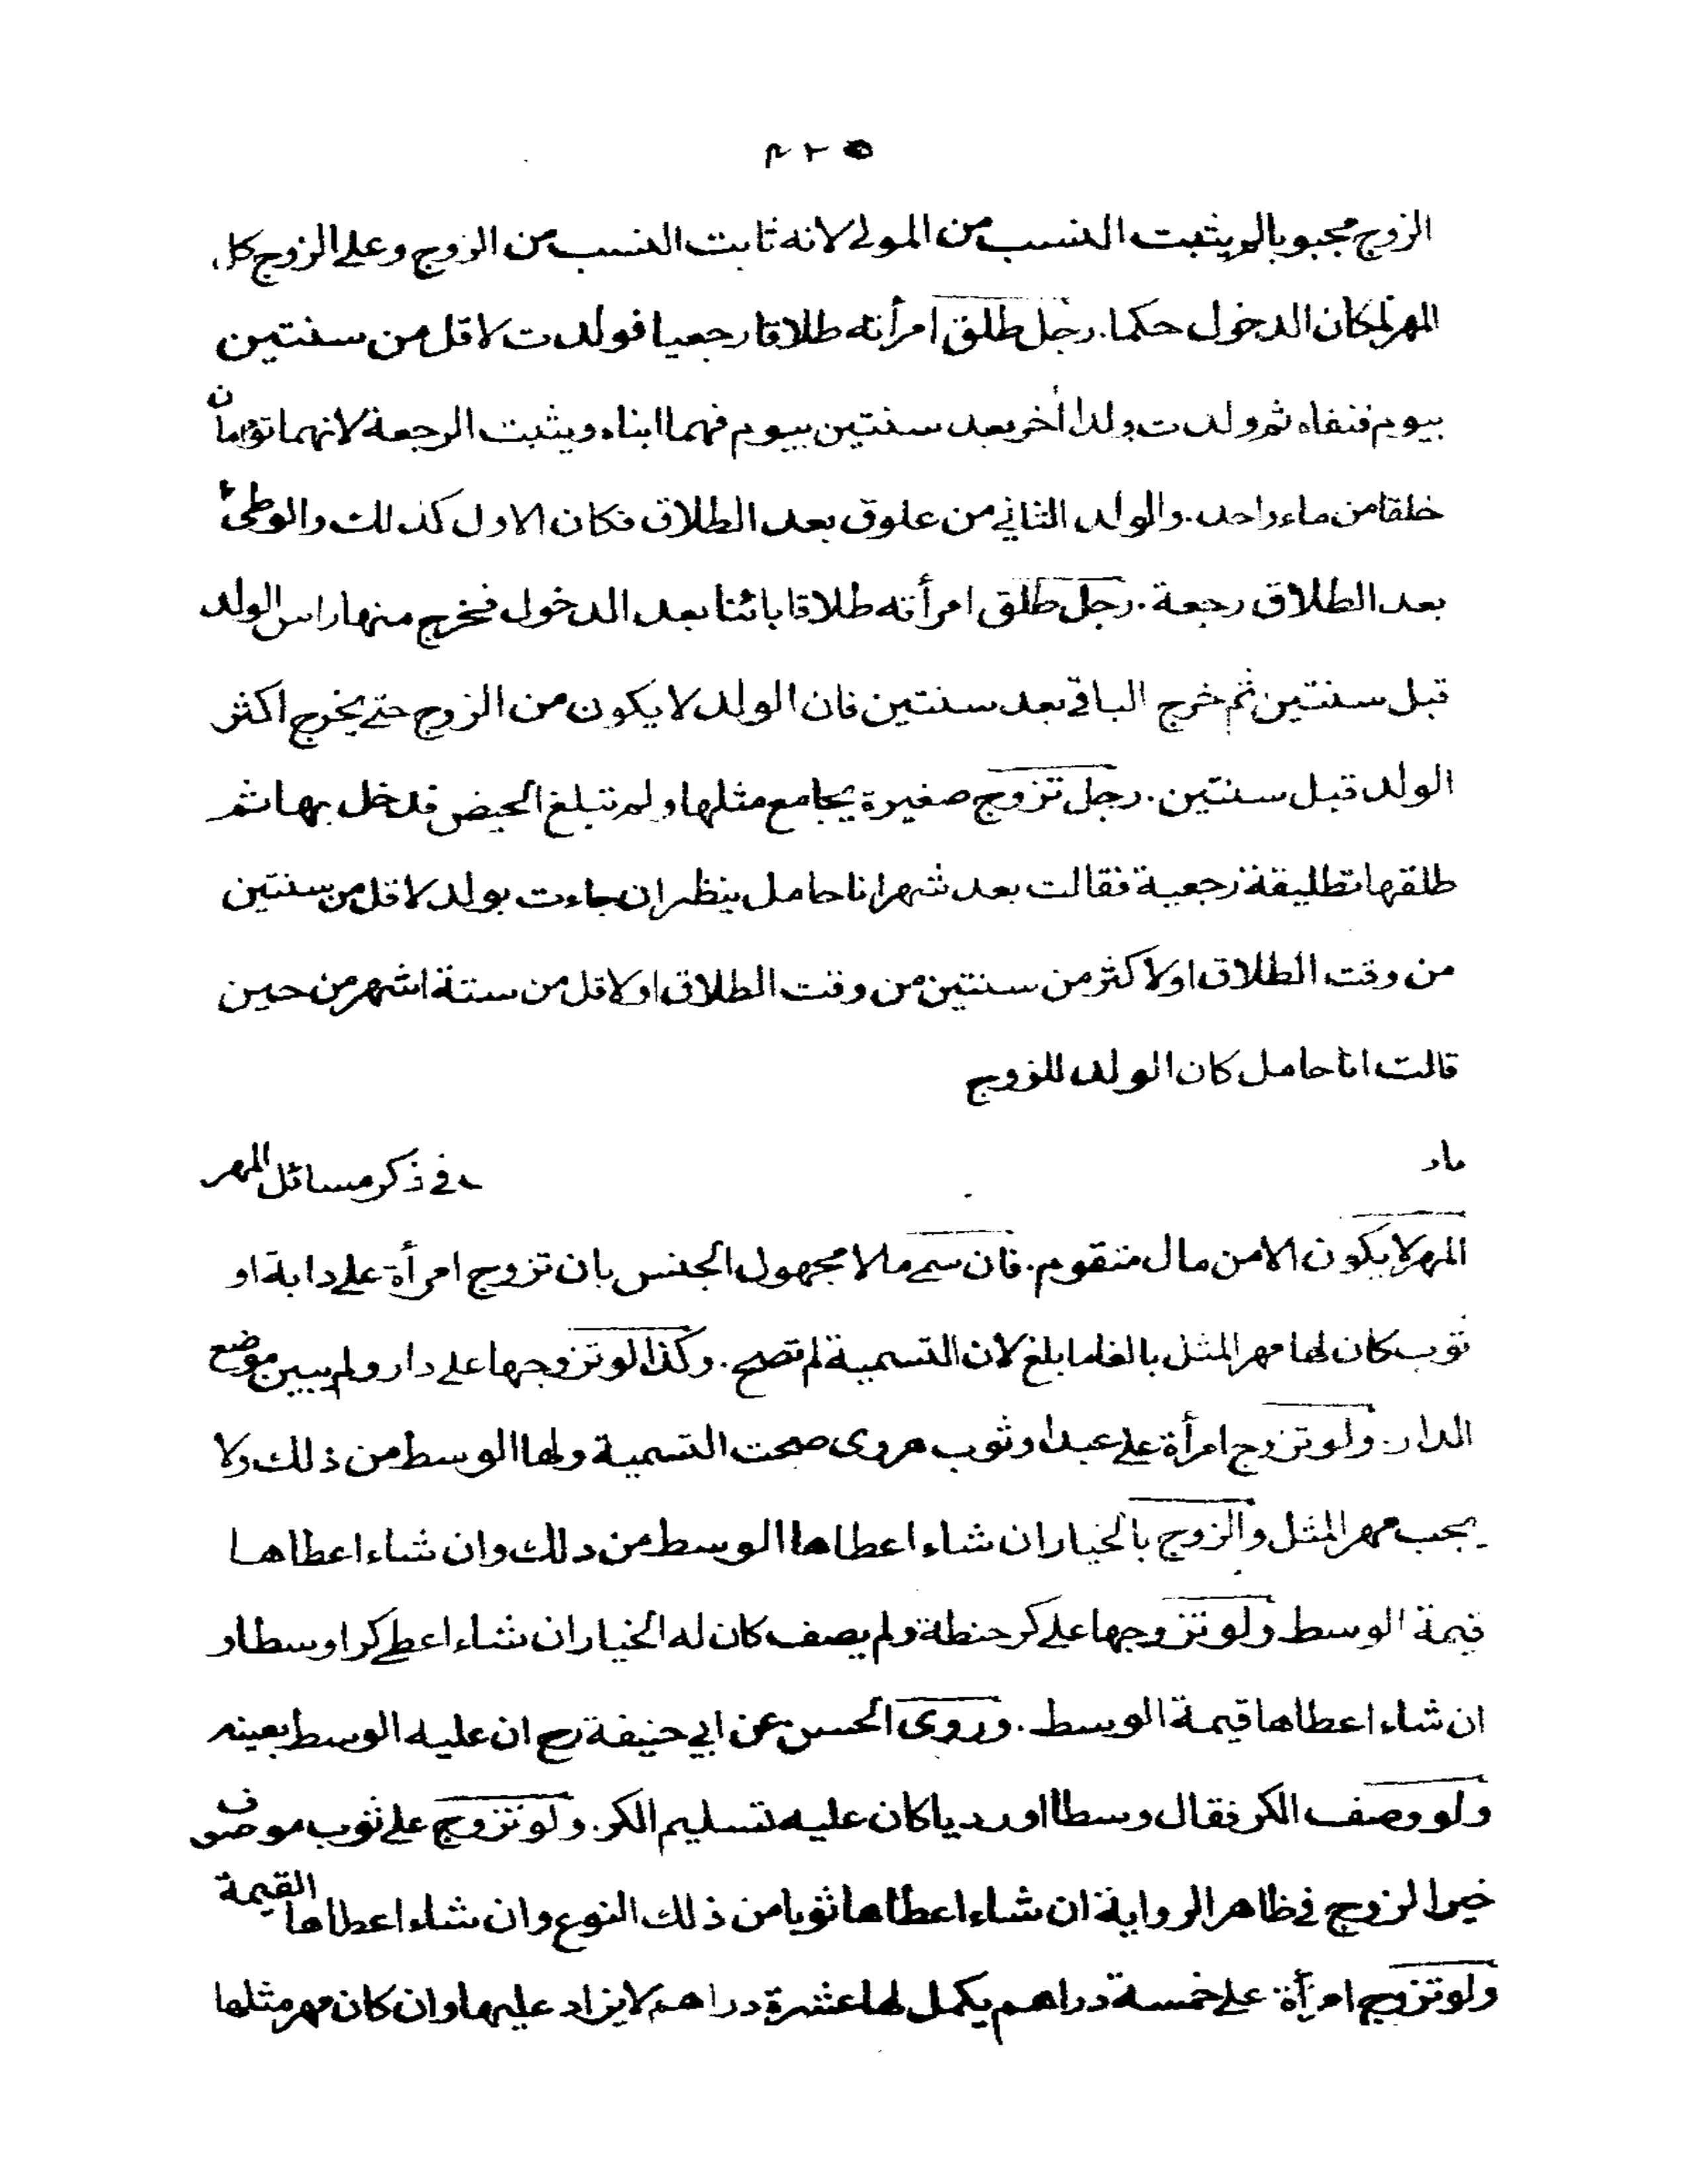 ٤٢٥
الزوج مجبوبا لم يثبت النسب من المولى لانه ثابت النسب من الزوج وعلى الزوج كل
المهر لمكان الدخول حكما. رجل طلق امرأته طلاقا رجعيا فولدت لاقل من سنتين
بيوم فنفاه ثم ولدت ولدا أخر بعد سنتين بيوم فهما ابناه ويثبت الرجعة لانهما توءمان
خلقا من ماء واحد. والولد الثاني من علوق بعد الطلاق فكان الاول كذلك والوطئ
بعد الطلاق رجعة. رجل طلق امرأته طلاقا بائنا بعد الدخول فخرج منها راس الولد
قبل سنتين ثم خرج الباقي بعد سنتين فان الولد لا يكون من الزوج حتى يخرج اكثر
الولد قبل سنتين. رجل تزوج صغيرة يجامع مثلها ولم تبلغ الحيض فدخل بها ثم
طلقها تطليقة رجعية فقالت بعد شهر انا حامل ينظر ان جاءت بولد لاقل من سنتين
من وقت الطلاق او لاكثر من سنتين من وقت الطلاق او لاقل من ستة اشهر من حين
قالت انا حامل كان الولد للزوج
باب في ذكر مسائل المهر
المهر لا يكون الا من مال متقوم. فان سمى مالا مجهول الجنس بان تزوج امرأة على دابة او
ثوب كان لها مهر المثل بالغا ما بلغ لان التسمية لم تصح. وكذا لو تزوجها على دار ولم يبين موضع
الدار. ولو تزوج امرأة على عبد او ثوب هروى صحت التسمية ولها الوسط من ذلك ولا
يجب مهر المثل والزوج بالخيار ان شاء اعطاها الوسط من ذلك وان شاء اعطاها
قيمة الوسط ولو تزوجها على كر حنطة ولم يصف كان له الخيار ان شاء اعطى كرا وسطا و
ان شاء اعطاها قيمة الوسط. وروى الحسن عن ابي حنيفة رح ان عليه الوسط بعينه
ولو وصف الكر فقال وسطا او رديا كان عليه تسليم الكر. ولو تزوج على ثوب موصوف
خير الزوج في ظاهر الرواية ان شاء اعطاها ثوبا من ذلك النوع وان شاء اعطاها القيمة
ولو تزوج امرأة على خمسة دراهم يكمل لها عشرة دراهم لا يزاد عليها وان كان مهر مثلها